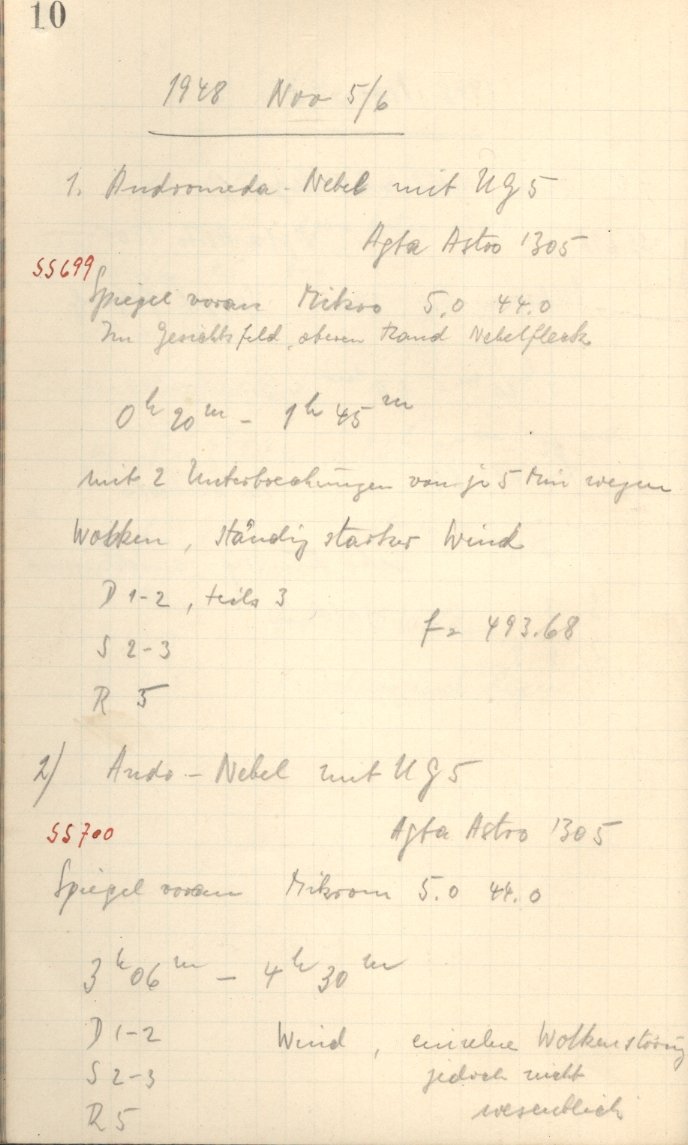 10
1948 Nov 5/6
1. Andromeda-Nebel mit UG5
Agfa Astro 1305
SS699
Spiegel voran Mikro 5.0 44.0
Im Gesichtsfeld, oberen Rand Nebelfleck
0h 20m - 1h 45m
mit 2 Unterbrechungen von je 5 Min wegen
Wolken, ständig starker Wind
D 1-2, teils 3
f = 493.68
S 2-3
R 5
2) Andr-Nebel mit UG5
SS700
Agfa Astro 1305
Spiegel voran Mikrom 5.0 44.0
3h 06m - 4h 30m
D 1-2 Wind, einzelne Wolkenstörung
S 2-3 jedoch nicht
R 5 wesentlich